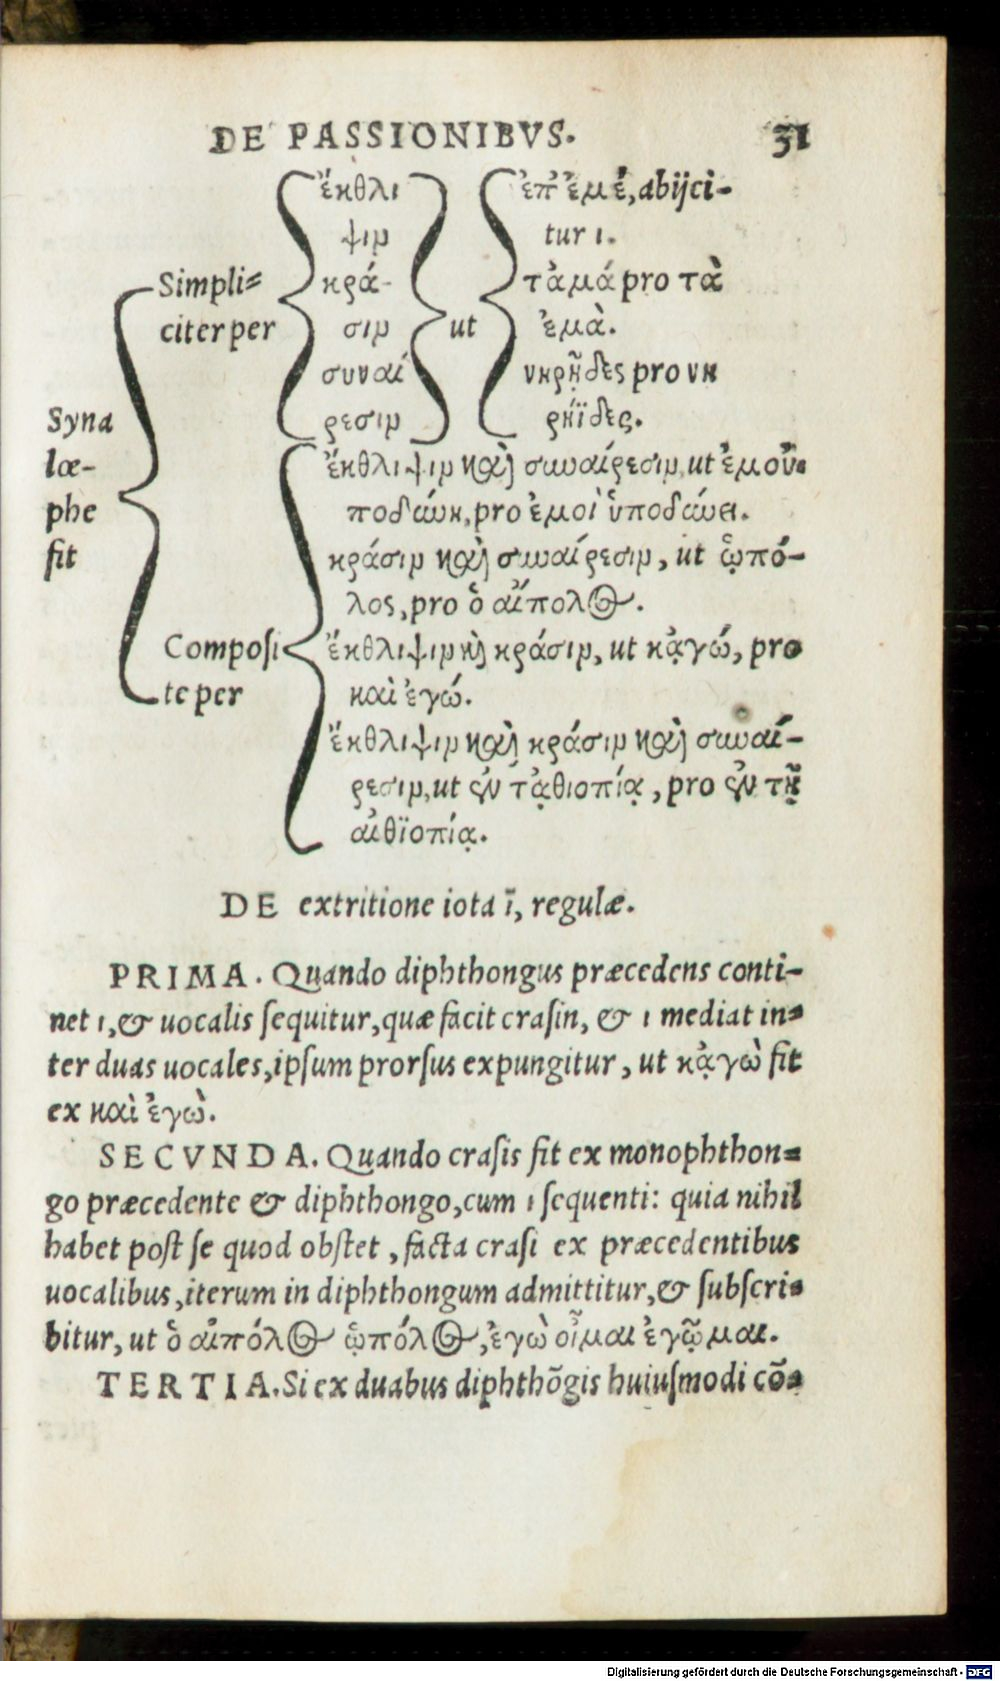 DE PASSIONIBVS. 31
Synalœ-
phe
fit
Simpli=
citer per
ἔκθλι
ψιν
κρά-
σιν
συναί
ρεσιν
ut
ἐπ' ἐμέ, abijci-
tur ι.
τἀμά pro τὰ
ἐμὰ.
νκρῇδες pro νκ
ρηΐδες.
Composi
te per
ἔκθλιψιν καὶ συναίρεσιν, ut ἐμοὐ=
ποδώνη, pro ἐμοὶ ὑποδώνει.
κράσιν καὶ συναίρεσιν, ut ᾡπό-
λος, pro ὁ αἴπολος.
ἔκθλιψιν καὶ κράσιν, ut κᾀγώ, pro
καὶ ἐγώ.
ἔκθλιψιν καὶ κράσιν καὶ συναί-
ρεσιν, ut ἐν τᾀθιοπίᾳ, pro ἐν τῇ
αἰθϊοπίᾳ.
DE extritione iota ῑ, regulæ.
PRIMA. Quando diphthongus præcedens conti-
net ι, & uocalis ſequitur, quæ facit craſin, & ι mediat in=
ter duas uocales, ipſum prorſus expungitur, ut κᾀγὼ fit
ex καὶ ἐγὼ.
SECVNDA. Quando craſis fit ex monophthon=
go præcedente & diphthongo, cum ι ſequenti: quia nihil
habet poſt ſe quod obſtet, facta craſi ex præcedentibus
uocalibus, iterum in diphthongum admittitur, & ſubſcri=
bitur, ut ὁ αἰπόλος ᾡπόλος, ἐγὼ οἶμαι ἐγᾦμαι.
TERTIA. Si ex duabus diphthõgis huiuſmodi cõ=
Digitalisierung gefördert durch die Deutsche Forschungsgemeinschaft - DFG